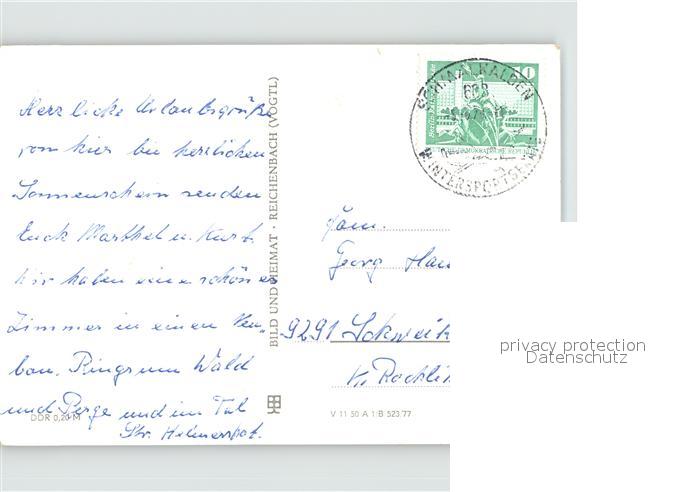 Herzliche Urlaubsgrüße
von hier bei herrlichen
Sonnenschein senden
Euch Marthel u. Kurt.
Wir haben eine schönes
Zimmer in einen Neu-
bau. Rings um Wald
und Berge und im Tal
Str. Helmershof.
DDR 0,20 M
BILD UND HEIMAT · REICHENBACH (VOGTL)
SCHMALKALDEN
WINTERSPORT
10
Fam.
Georg
9291
K. Rochli
V 11 50 A 1:B 523/77
privacy protection
Datenschutz